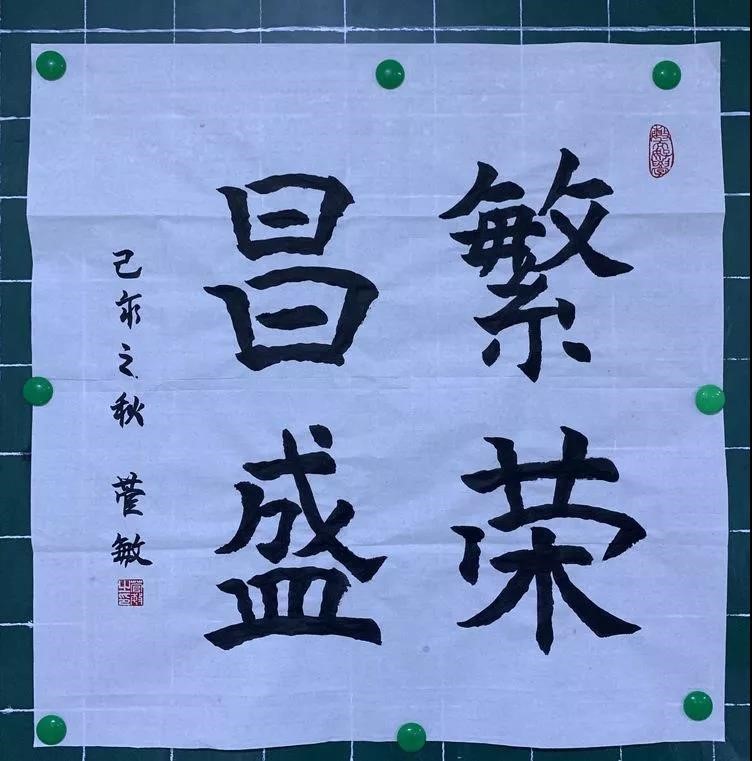 繁荣
昌盛
己亥之秋 菅敏